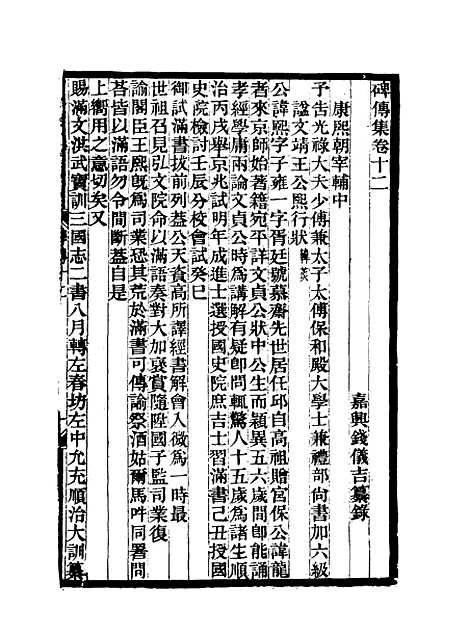 碑傳集卷十二
嘉興錢儀吉纂錄
康熙朝宰輔中
予告光祿大夫少傅兼太子太傅保和殿大學士兼禮部尚書加六級
謚文靖王公熙行狀 韓菼
公諱熙字子雍一字胥廷號慕齋先世居任邱自高祖贈宮保公諱龍
者來京師始著籍宛平詳文貞公狀中公生而穎異五六歲間卽能誦
孝經學庸兩論文貞公時爲講解有疑卽問輒驚人十五歲爲諸生順
治丙戌舉京兆試明年成進士選授國史院庶吉士習滿書己丑授國
史院檢討壬辰分校會試癸巳
御試滿書拔前列蓋公天資高所譯經書解會入微爲一時最
世祖召見弘文院命以滿語奏對大加裒賞隨陞國子監司業復
諭閣臣王熙旣爲司業恐其荒於滿書可傳諭祭酒姑爾馬吽同署問
荅皆以滿語勿令間斷蓋自是
上嚮用之意切矣又
賜滿文洪武寶訓三國志二書八月轉左春坊左中允充順治大訓纂